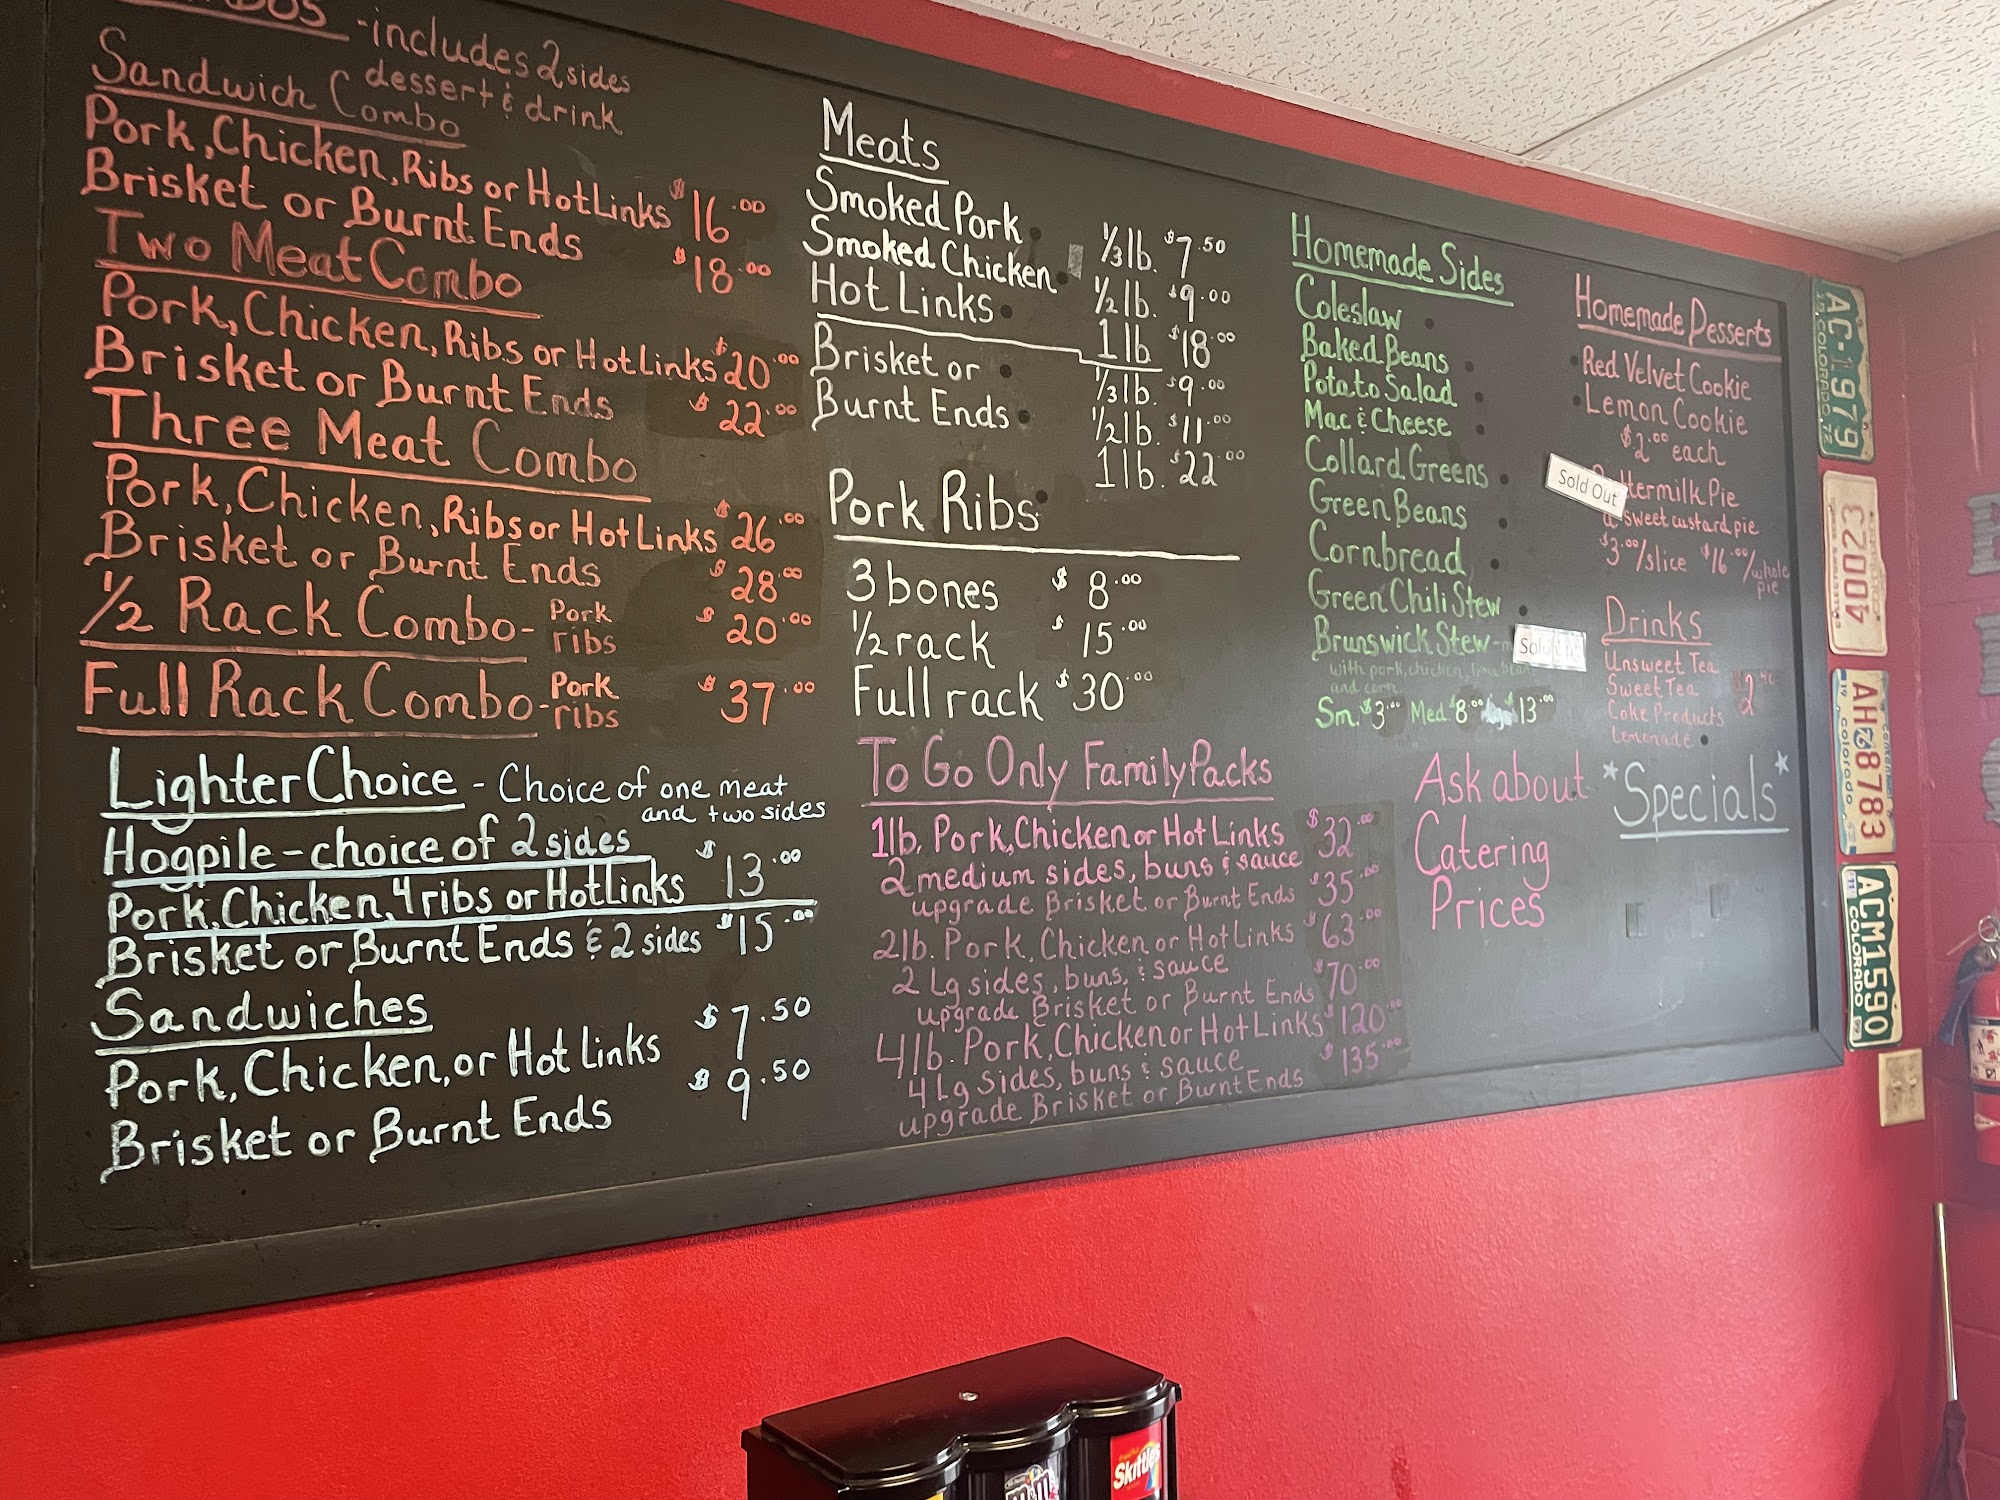 -includes 2 sides
dessert & drink
Sandwich Combo
Pork, Chicken, Ribs or Hot Links $16.00
Brisket or Burnt Ends $18.00
Two Meat Combo
Pork, Chicken, Ribs or Hot Links $20.00
Brisket or Burnt Ends $22.00
Three Meat Combo
Pork, Chicken, Ribs or Hot Links $26.00
Brisket or Burnt Ends $28.00
1/2 Rack Combo - Pork ribs $20.00
Full Rack Combo - Pork ribs $37.00
Lighter Choice - Choice of one meat
and two sides
Hogpile - choice of 2 sides
Pork, Chicken, 4 ribs or Hot Links $13.00
Brisket or Burnt Ends & 2 sides $15.00
Sandwiches
Pork, Chicken, or Hot Links $7.50
Brisket or Burnt Ends $9.50
Meats
Smoked Pork 1/3 lb. $7.50
Smoked Chicken 1/2 lb. $9.00
Hot Links 1 lb $18.00
Brisket or 1/3 lb. $9.00
Burnt Ends 1/2 lb. $11.00
1 lb. $22.00
Pork Ribs
3 bones $8.00
1/2 rack $15.00
Full rack $30.00
To Go Only Family Packs
1 lb. Pork, Chicken or Hot Links $32.00
2 medium sides, buns & sauce
upgrade Brisket or Burnt Ends $35.00
2 lb. Pork, Chicken or Hot Links $63.00
2 Lg sides, buns, & sauce
upgrade Brisket or Burnt Ends $70.00
4 lb. Pork, Chicken or Hot Links $120.00
4 Lg sides, buns & sauce
upgrade Brisket or Burnt Ends $135.00
Homemade Sides
Coleslaw
Baked Beans
Potato Salad
Mac & Cheese
Collard Greens
Green Beans
Cornbread
Green Chili Stew
Brunswick Stew -
Sold Out
with pork, chicken, lima bean
and corn
Sm. $3.00 Med $8.00 Lg $13.00
Ask about
Catering
Prices
Homemade Desserts
Red Velvet Cookie
Lemon Cookie
$2.00 each
Sold Out
termilk Pie
a sweet custard pie
$3.00/slice $16.00/whole pie
Drinks
Unsweet Tea
Sweet Tea
Coke Products
Lemonade
*Specials*
AC-1979
COLORADO 72
40023
AH-8783
19 Colorado
ACM1590
COLORADO
m&m's
Skittles